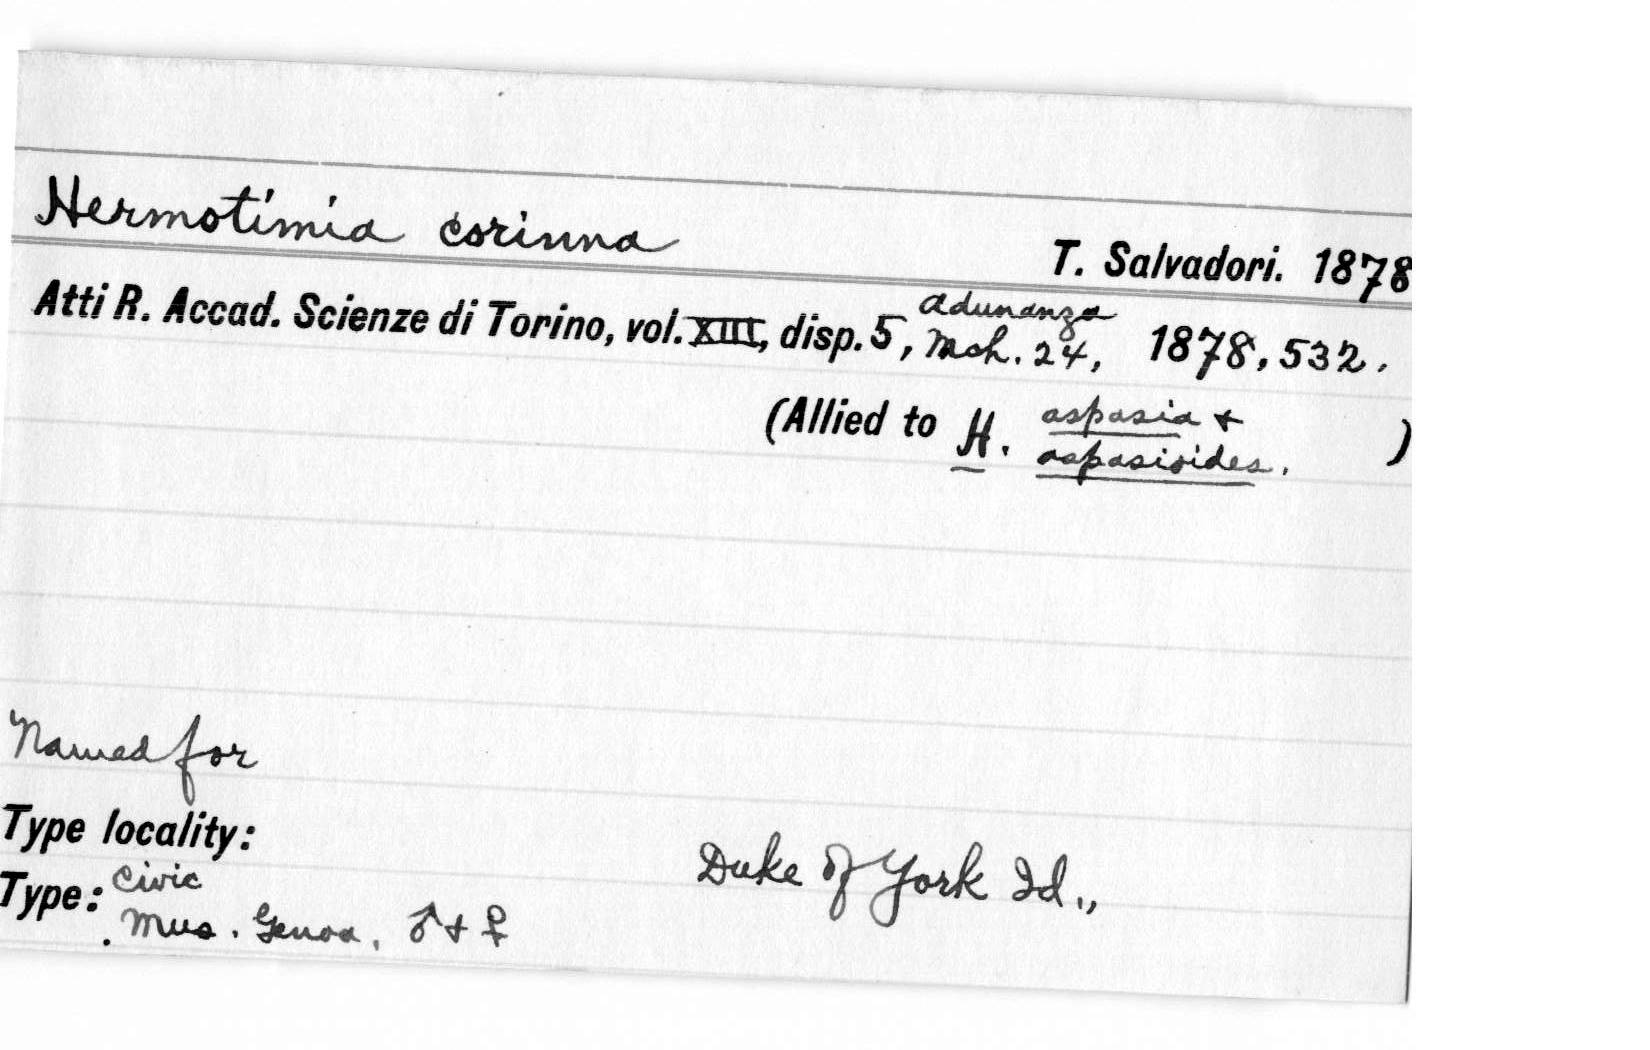 Hermotimia corinna
T. Salvadori. 1878
Atti R. Accad. Scienze di Torino, vol. XIII, disp. 5, adunanza Mch. 24, 1878, 532.
(Allied to H. aspasia + aspasioides. )
Named for
Type locality:
Duke of York Id.,
Type: Civic
Mus. Genoa, ♂ + ♀